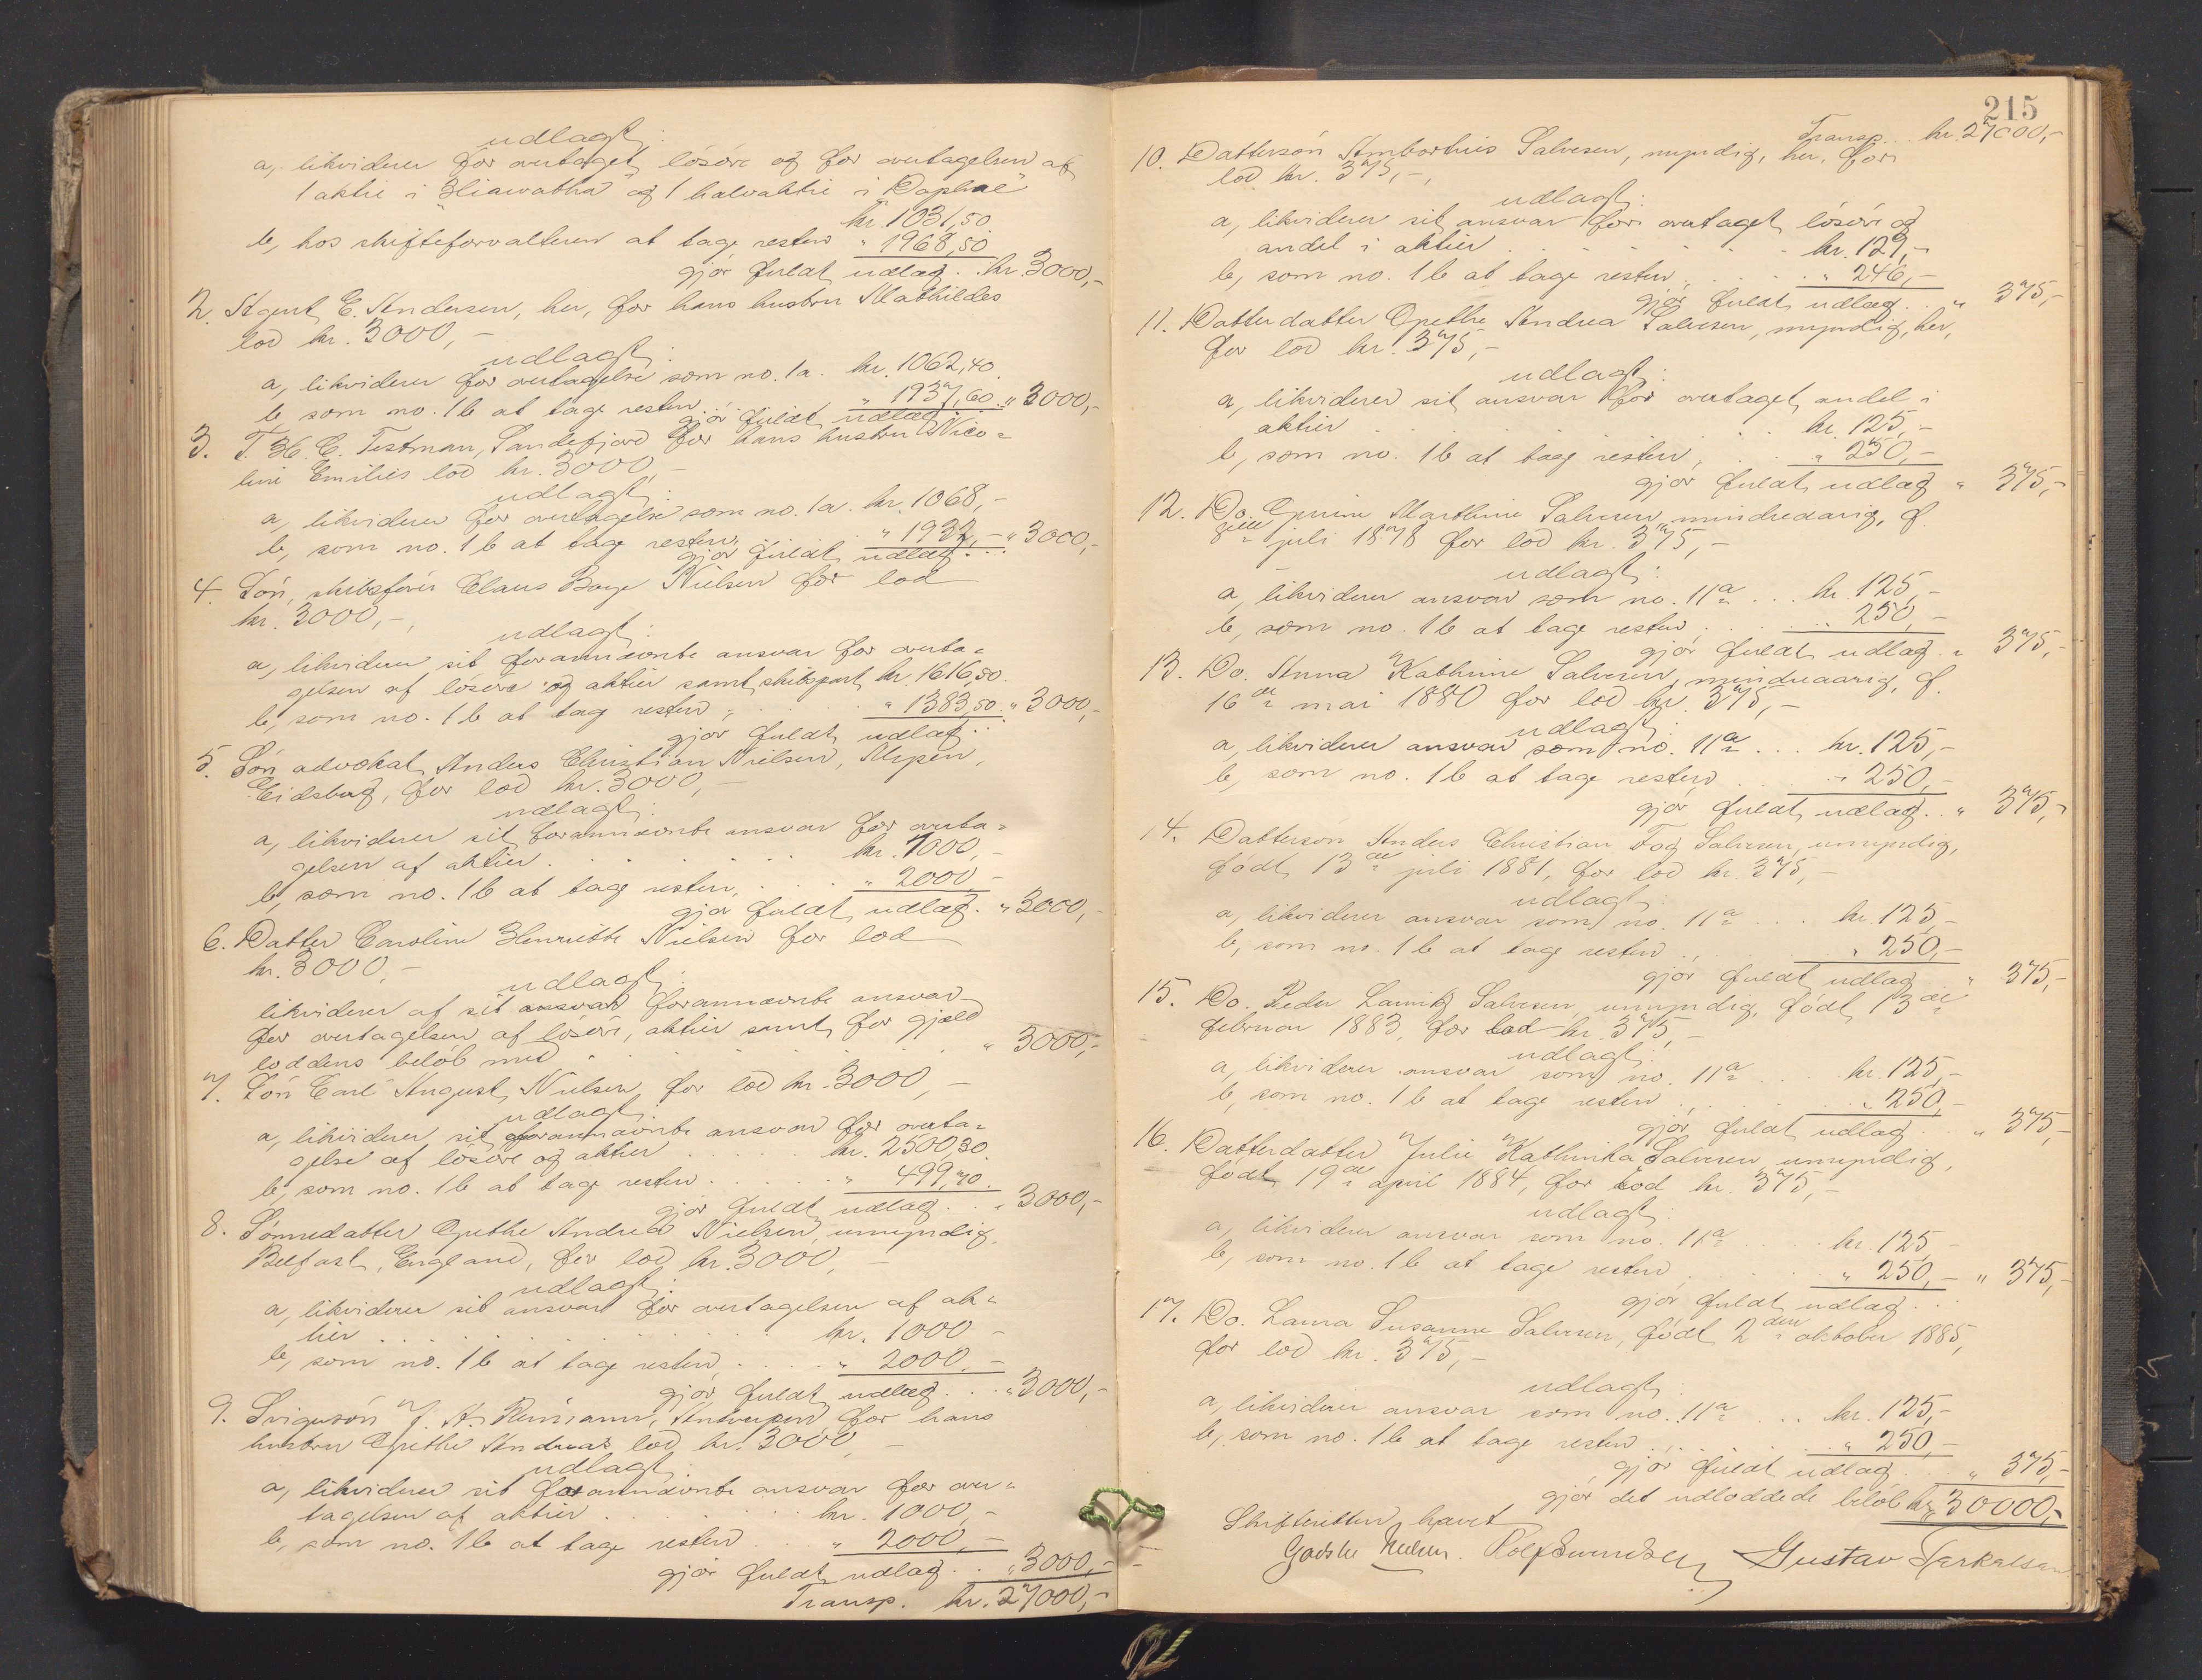 udlagt:
a, likviderer for overtaget lösöre og for overtagelsen af
1 aktie i "Hiawatha" og 1 halvaktie i "Daphne"
kr. 1031,50
b, hos skifteforvalteren at tage resten " 1968,50
gjör fuldt udlæg . kr. 3000,-
2. Agent E. Andersen, her, for hans hustru Mathildes
lod kr. 3000,-
udlagt:
a, likviderer for overtagelse som no. 1a. kr. 1062,40
b, som no. 1b at tage resten " 1937,60
gjör fuldt udlæg " 3000,-
3. T. H. C. Testman, Sandefjord for hans hustru Nico=
line Emilies lod kr. 3000,-
udlagt:
a, likviderer for overtagelse som no. 1a. kr. 1068,-
b, som no. 1b at tage resten " 1932,-
gjör fuldt udlæg " 3000,-
4. Sön, skibsförer Claus Bage Nielsen for lod
kr. 3000,-,
udlagt:
a, likviderer sit forannævnte ansvar for overta=
gelsen af lösöre og aktier samt skibspart kr. 1616,50
b, som no. 1b at tage resten, " 1383,50
gjör fuldt udlæg " 3000,-
5. Sön advokat Anders Christian Nielsen, Mysen,
Eidsberg, for lod kr. 3000,-
udlagt:
a, likviderer sit forannævnte ansvar for overta=
gelsen af aktier . . . kr. 1000,-
b, som no. 1b at tage resten, " 2000,-
gjör fuldt udlæg . " 3000,-
6. Datter Caroline Henriette Nielsen for lod
kr. 3000,-
udlagt:
likviderer af sit ansvar forannævnte ansvar
for overtagelsen af lösöre, aktier samt for gjæld
loddens belöb med . . . " 3000,-
7. Sön Carl August Nielsen for lod kr. 3000,-
udlagt:
a, likviderer sit forannævnte ansvar for overta=
gelse af lösöre og aktier . . . kr. 2500,30
b, som no. 1b at tage resten . . . " 499,70
gjör fuldt udlæg . " 3000,-
8. Sönnedatter Grethe Andrea Nielsen, umyndig,
Belfast, England, for lod kr. 3000,-
udlagt:
a, likviderer sit ansvar for overtagelsen af ak=
tier . . . kr. 1000,-
b, som no. 1b at tage resten, . . . " 2000,-
gjör fuldt udlæg . . " 3000,-
9. Svigersön J. A. Reimann, Antwerpen for hans
hustru Grethe Andreas lod kr. 3000,-
udlagt:
a, likviderer sit forannævnte ansvar for over=
tagelsen af aktier . . . kr. 1000,-
b, som no. 1b at tage resten . . . " 2000,-
gjör fuldt udlæg . . " 3000,-
Transp. kr. 27000,-
215
Transp. . . kr. 27000,-
10. Dattersön Salvesen, myndig, her, for
lod kr. 375,-,
udlagt:
a, likviderer sit ansvar for overtaget lösöre og
andel i aktier . . . kr. 129,-
b, som no. 1b at tage resten, . . . " 246,-
gjör fuldt udlæg . . " 375,-
11. Datterdatter Grethe Andrea Salvesen, myndig, her,
for lod kr. 375,-
udlagt:
a, likviderer sit ansvar for overtaget andel i
aktier . . . kr. 125,-
b, som no. 1b at tage resten, . . . " 250,-
gjör fuldt udlæg " 375,-
12. Do. Marthine Salvesen, mindreaarig, f.
8de juli 1878 for lod kr. 375,-
udlagt:
a, likviderer ansvar som no. 11a . . . kr. 125,-
b, som no. 1b at tage resten, . . . " 250,-
gjör fuldt udlæg . " 375,-
13. Do. Anna Kathrine Salvesen, mindreaarig, f.
16de mai 1880 for lod kr. 375,-
udlagt:
a, likviderer ansvar som no. 11a . . . kr. 125,-
b, som no. 1b at tage resten . . . " 250,-
gjör fuldt udlæg . . " 375,-
14. Dattersön Anders Christian Fog Salvesen, umyndig,
födt 13de juli 1881, for lod kr. 375,-
udlagt:
a, likviderer ansvar som no. 11a . . kr. 125,-
b, som no. 1b at tage resten . . . " 250,-
gjör fuldt udlæg " 375,-
15. Do. Peder Salvesen, umyndig, födt 13de
februar 1883, for lod kr. 375,-
udlagt:
a, likviderer ansvar som no. 11a . . . kr. 125,-
b, som no. 1b at tage resten . . . " 250,-
gjör fuldt udlæg . " 375,-
16. Datterdatter Julie Kathinka Salvesen umyndig,
födt 19de april 1884, for lod kr. 375,-
udlagt:
a, likviderer ansvar som no. 11a . . . kr. 125,-
b, som no. 1b at tage resten, . . . " 250,-
gjör fuldt udlæg . . . " 375,-
17. Do. Laura Susanne Salvesen, födt 2den oktober 1885,
for lod kr. 375,-
udlagt:
a, likviderer ansvar som no. 11a . . . kr. 125,-
b, som no. 1b at tage resten . . . " 250,-
gjör fuldt udlæg . . " 375,-
gjör det udloddede belöb kr. 30000,-
Skifteretten hævet
Godske Nielsen. Gustav Terkelsen